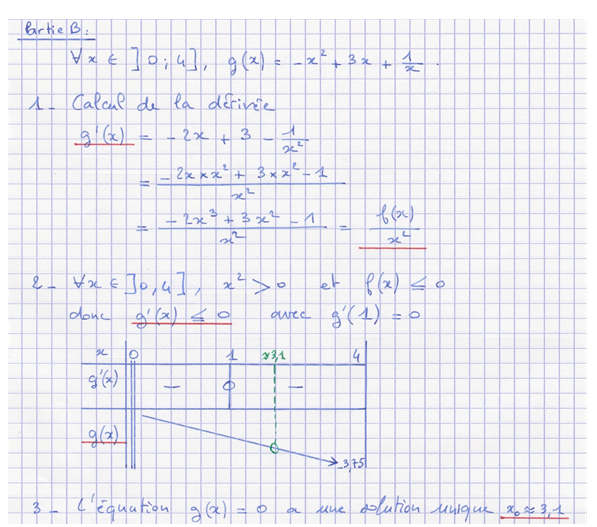 Partie B :
∀x ∈ ]0 ; 4], g(x) = -x² + 3x + 1/x .
1 - Calcul de la dérivée
g'(x) = - 2x + 3 - 1/x²
= (- 2x × x² + 3 × x² - 1)/x²
= (- 2x³ + 3x² - 1)/x² = f(x)/x²
2 - ∀x ∈ ]0, 4], x² > 0 et f(x) ≤ 0
donc g'(x) ≤ 0 avec g'(1) = 0
x 0 1 ≈3,1 4
g'(x) - 0 -
g(x) 0 -3,75
3 - L'équation g(x) = 0 a une solution unique x₀ ≈ 3,1